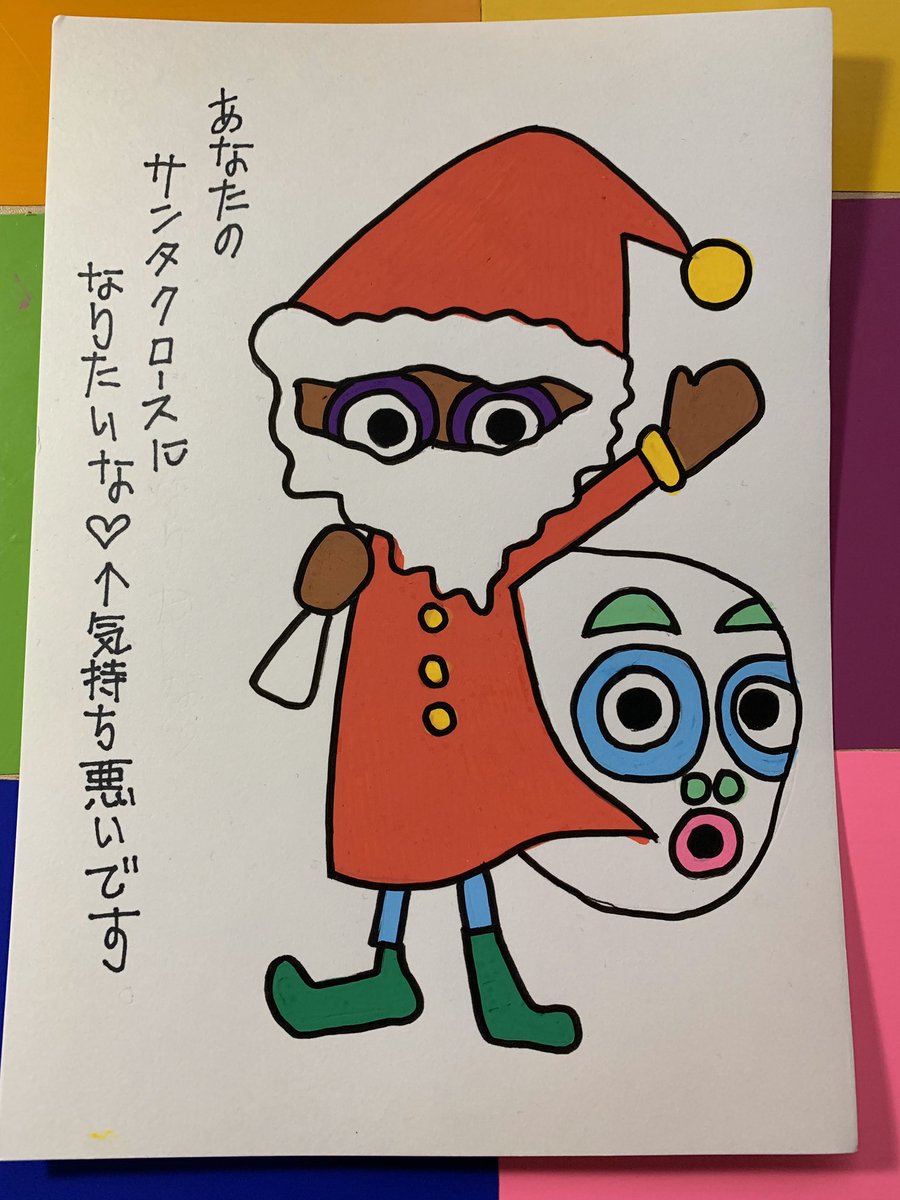 あなたの
サンタクロースに
なりたいな♡↑気持ち悪いです